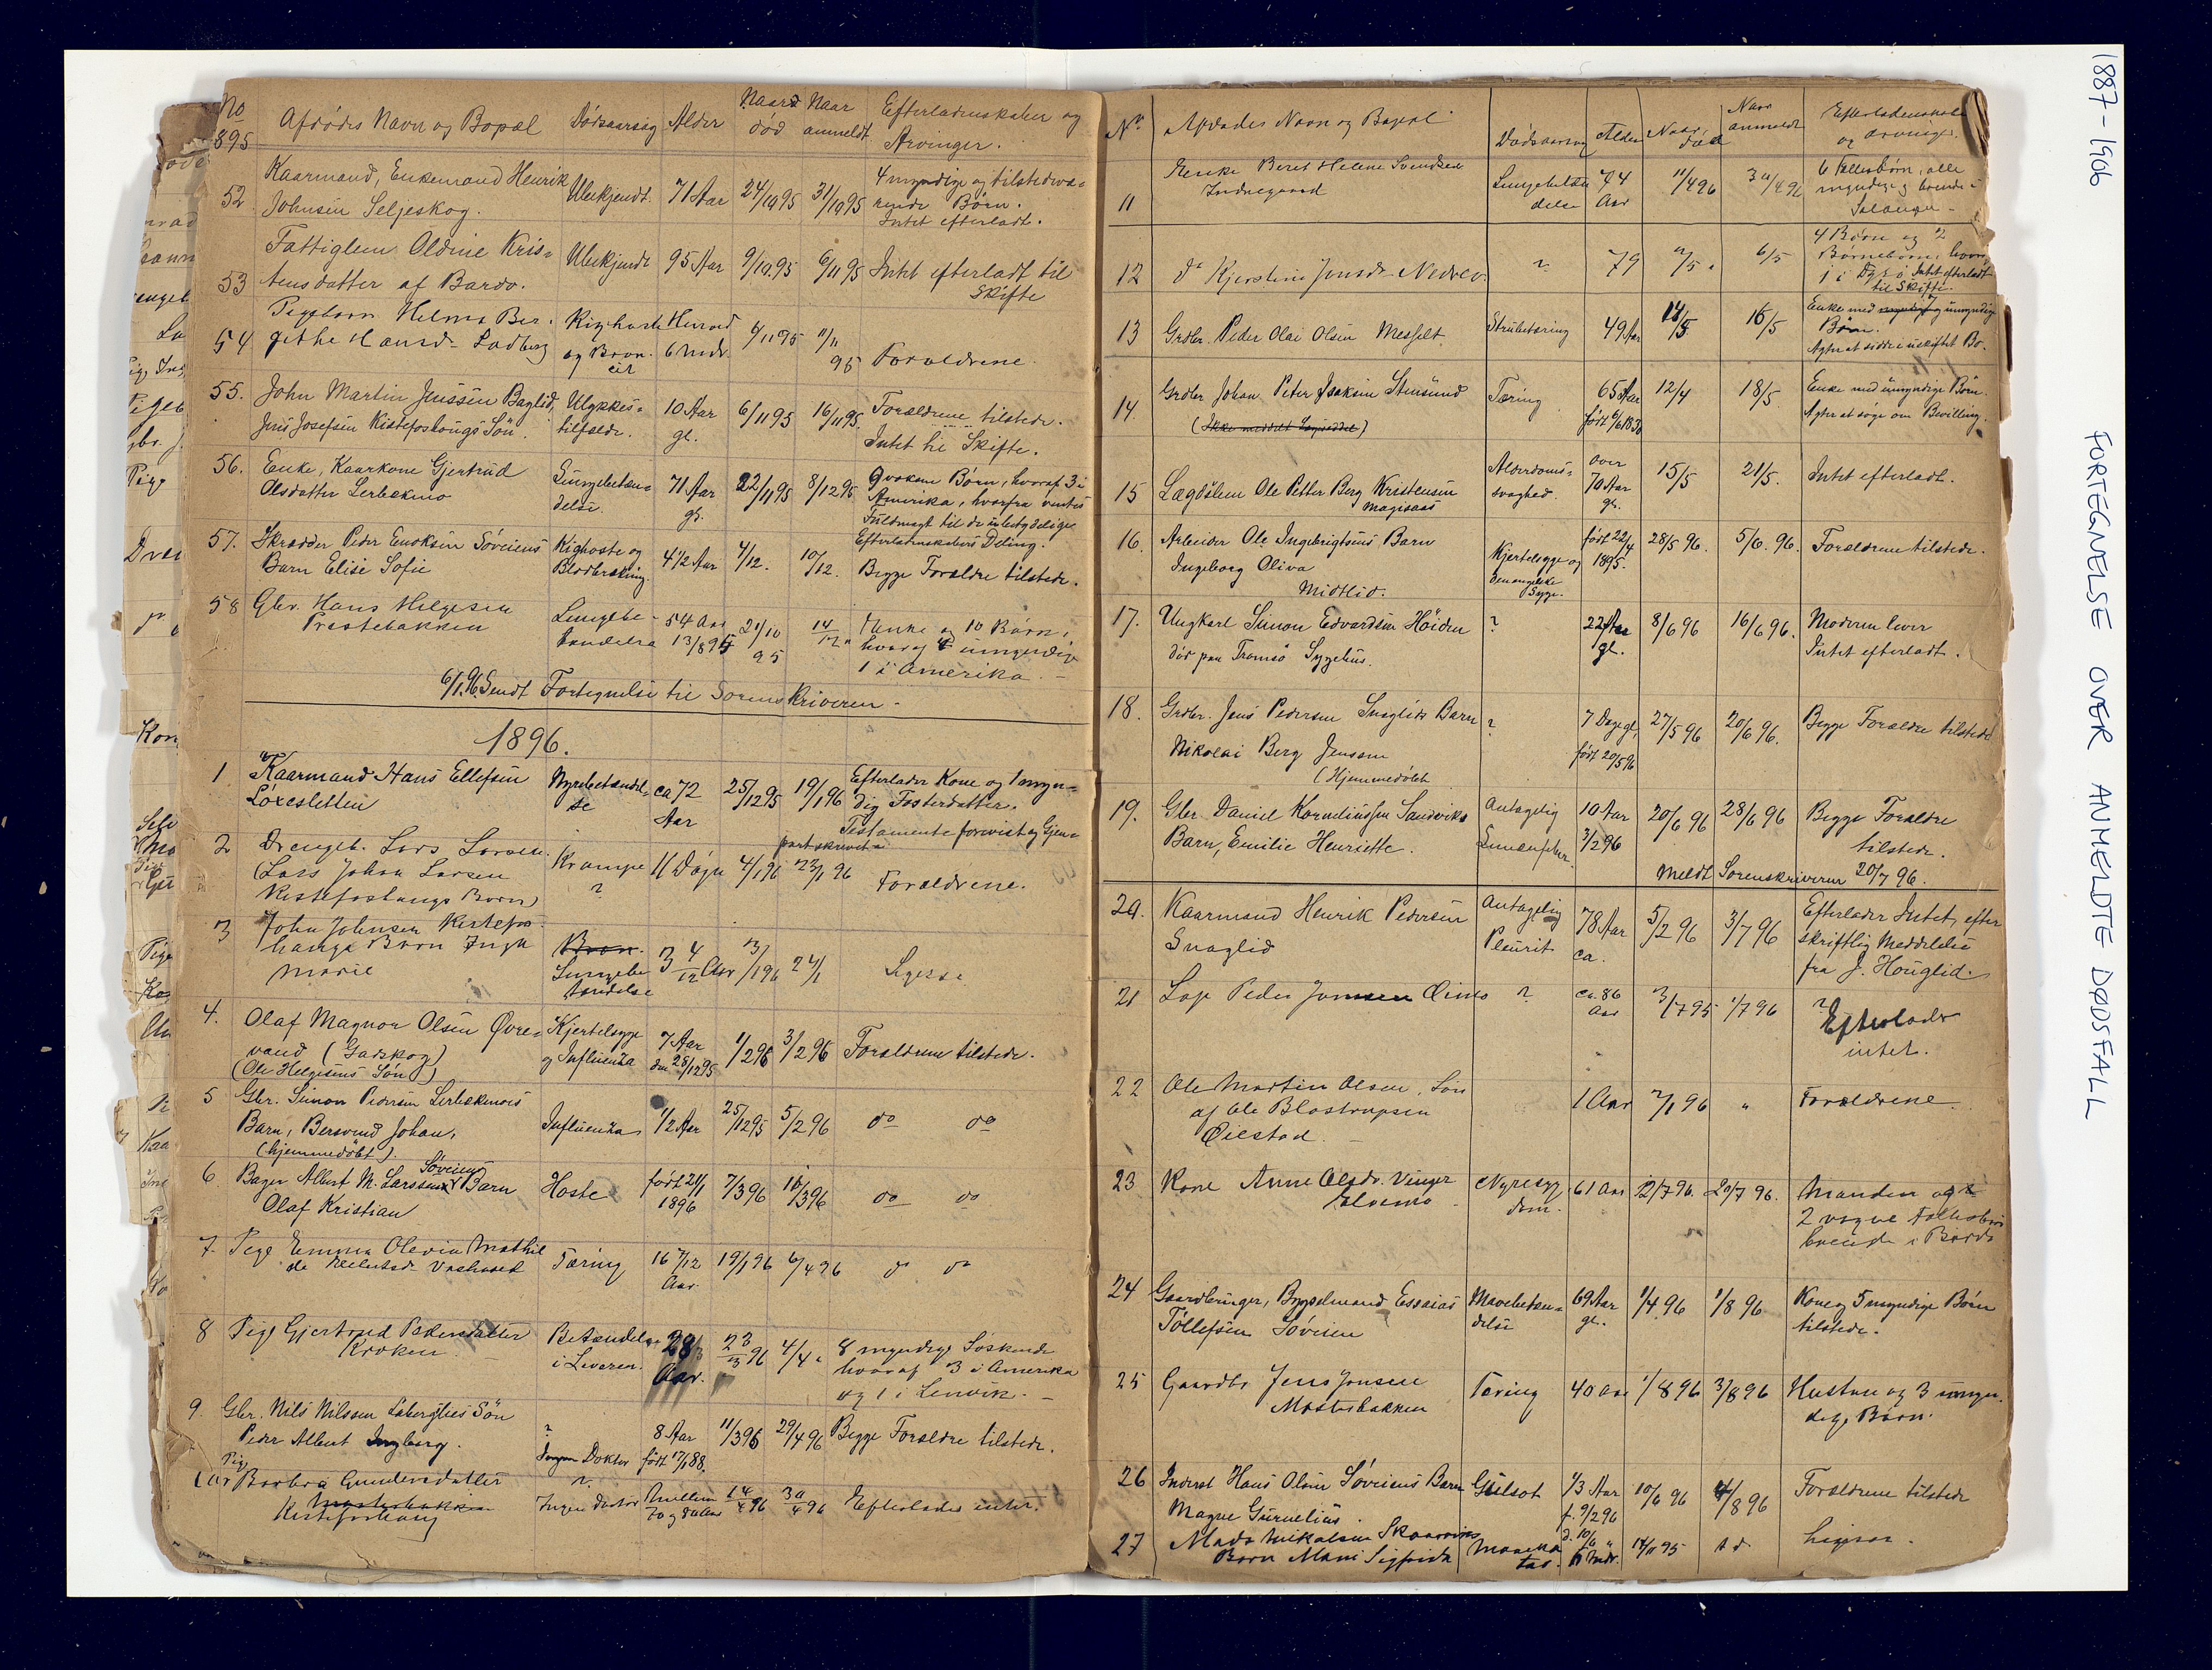 No
895
Afdødes Navn og Bopæl
Dødsaarsag
Alder
Naar død
Naar anmeldt
Efterladenskaber og
Arvinger.
52
Kaarmand, Enkemand Henrik
Johnsen Seljeskog.
Ubekjendt.
71 Aar
24/10 95
31/10 95
4 myndige og tilstedevæ=
rende Børn.
Intet efterladt.
53
Fattiglem Oldine Kris=
tensdatter af Bardo.
Ubekjendt
95 Aar
9/10 95
6/11 95
Intet efterladt til
Skifte
54
Pigebarn Helma Ber-
githe Hansd-
Kighoste
og Bron-
cit
6 Mdr.
4/11 95
11/11
95
Forældrene
55.
John Martin Jenssen Baglid,
Jens Josefsen Kistefoshougs Søn.
Ulykkes=
tilfælde.
10 Aar
gl.
6/11 95
16/11 95.
Forældrene tilstede.
Intet til Skifte.
56.
Enke, Kaarkone Gjertrud
Olsdatter Lerbekmo
Lungebetæn=
delse.
71 Aar
gl.
22/11 95
8/12 95
9 voksne Børn, hvoraf 3 i
Amerika, hvorfra ventes
Fuldmagt til de ubetydelige
Efterladenskabers Deling.
57.
Skrædder Peder Enoksen Søveiens
Barn Elise Sofie
Kighoste og
Blodbrækning
4 1/2 Aar
4/12.
10/12.
Begge Forældre tilstede.
58
Gbr. Hans Helgesen
Prestebakken
Lungebe-
tændelse
54 Aar
13/8 95
21/10
95
14/12 "
Enke og 10 Børn,
hvoraf 4 umyndige
1 i Amerika. -
6/1 96 Sendt Fortegnelse til Sorenskriveren -
1896.
1
Kaarmand Hans Ellefsen
Løxesletten
Nyrebetændel=
se
ca 72
Aar
25/12 95
19/1 96
Efterlader Kone og 1 myn=
dig Fosterdatter.
Testamente forevist og Gjen=
partskrivet
2
Drengeb. Lars Larsen
(Lars Johan Larsen
Kistefoshaugs Barn)
Krampe
?
11 Døgn
4/1 96
23/1 96
Forældrene.
3
John Johnsen Kistefos-
haugs Barn Inga
Marie
Lungebe-
tændelse
3 4/12 Aar
13/1 96
24/1
Ligesaa
4.
Olaf Magnor Olsen Øvre=
vand (Gaskog)
(Ole Helgesens Søn)
Kjertelsyge
og Influenza
7 Aar
den 28/12 95
1/2 96
3/2 96
Forældrene tilstede.
5
Gbr. Simon Pedersen Lerbekmoes
Barn, Bersvend Johan,
(hjemmedøbt).
Influenza
1/2 Aar
25/12 95
5/2 96
do do
6
Søveiens
Bager Albert M. Larssens Barn
Olaf Kristian
Hoste
født 21/1
1896
7/3 96
16/3 96
do do
7.
Pige Emma Olevia Mathil
de
Tæring
16 7/12
Aar
19/1 96
6/4 96
do do
8
Pige Gjertrud Pedersdatter
Kroken
Betændelse
i Leveren.
28
Aar.
23/3 96
4/4 "
8 myndige Søskende
hvoraf 3 i Amerika
og 1 i Lenvik. -
9.
Gbr. Nils Nilssen Løbergslies Søn
Peder Albert Ingberg.
?
Ingen Doktor
8 Aar
født 17/1 88.
11/3 96
29/4 96
Begge Forældre tilstede.
10
Pige
Barbra Gundersdatter
Kistefoshaug
?
Ingen doctor
Mellem
70 og 80 Aar
14/4 96
30/4 96
Efterlader intet.
No
Afdødes Navn og Bopæl
Dødsaarsag
Alder
Naar død
Naar anmeldt
Efterladenskab
og Arvinger.
11
Enke Beret Helene Svendsen
Indregaard
Lungebetæn
delse
74
Aar
11/4 96
30/4 96
6 Fællesbørn, alle
myndige og boende i
Salangen -
12
do Kjerstine Jensdr Nedrev.
?
79
2/5 "
6/5
4 Børn og 2
Børnebørn, hvoraf
Intet efterladt
til Skifte.
13
Grdbr. Peder Olai Olsen Messelt
Strubetæring
49 Aar
11/5
16/5
Enke med umyndige
Børn.
Agter at sidde i uskiftet Bo.
14
Grdbr Johan Peter Joakim Stensund
(Ikke meddelt Lægseddel)
Tæring
65 Aar
født 6/6 1830
12/4
18/5
Enke med umyndige Børn.
Agter at søge om Bevilling.
15
Lægdslem Ole Petter Berg Kristensen
Alderdoms=
svaghed.
over
70 Aar
gl.
15/5
21/5.
Intet efterladt.
16.
Arbeider Ole Ingebrigtsens Barn
Ingeborg Oliva
Midtlid.
Kjertelsyge og
den engelske
Syge.
født 22/4
1895.
28/5 96.
5/6 96.
Forældrene tilstede.
17.
Ungkarl Simon Edvardsen Høiden
død paa Tromsø Sygehus.
?
22 Aar
gl.
8/6 96
16/6 96.
Moderen lever
Intet efterladt.
18.
Grdbr. Jens Pedersen Snaglids Barn
Nikolai Berg Jenssen
(Hjemmedøbt
?
7 Dage gl,
født 20/5 96
27/5 96
20/6 96.
Begge Forældre tilstede
19.
Gbr. Daniel Korneliussen Sandviks
Barn, Emilie Henriette.
Antagelig
10 Aar
3/2 96
20/6 96
28/6 96
Begge Forældre
tilstede.
Meldt Sorenskriveren 20/7 96.
20.
Kaarmand Henrik Pedersen
Snaglid
Antagelig
Pleurit
78 Aar
ca.
5/2 96
3/7 96
Efterlader Intet, efter
skriftlig Meddelelse
fra J. Houglid.
21
Lap Peder Jonsen
?
ca. 86
Aar
3/7 95
1/7 96
?
Efterlader
intet.
22
Ole Martin Olsen, Søn
af Ole Blostrupsen
Øiestad. -
1 Aar
2/1 96
"
Forældrene.
23
Kone Anne Olsdr. Vinger
Elvemo
Nyresyg
dom.
61 Aar
12/7 96.
20/7 96.
Manden og
2 voxne Fællesbørn
boende i Bardo
24
Gaardbruger, Bygselmand Essaias
Tollefsen Søveien
Mavebetæn=
delse
69 Aar
gl.
1/4 96
1/8 96
Kone og 5 myndige Børn
tilstede.
25
Gaardbr Jens Jonsen
Mosterbakken
Tæring
40 Aar
1/8 96
3/8 96
Hustru og 3 umyn-
dige Børn.
26
Inderst Hans Olsen Søveiens Barn
Magne Gurnelius.
Gulsot
1/3 Aar
f. 9/2 96
d. 10/6 "
10/6 96
4/8 96
Forældrene tilstede
27
Mads Mikalsen
Barn Mani Sigfrida
14/11 95
Ligesaa.
1887-1906 FORTEGNELSE OVER ANMELDTE DØDSFALL